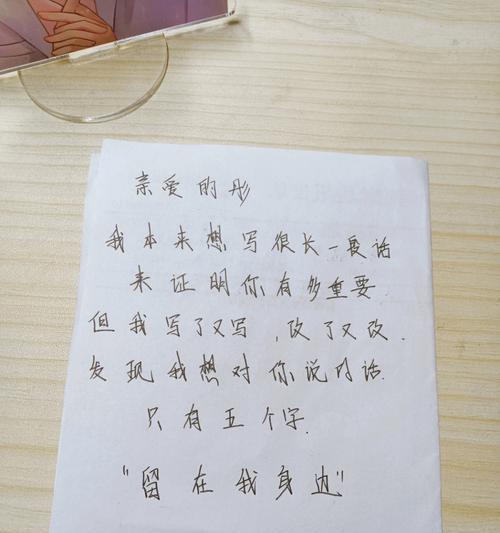 亲爱的彤
我本来想写很长一段话
来证明你有多重要
但我写了又写,改了又改.
发现我想对你说的话
只有五个字.
"留在我身边"